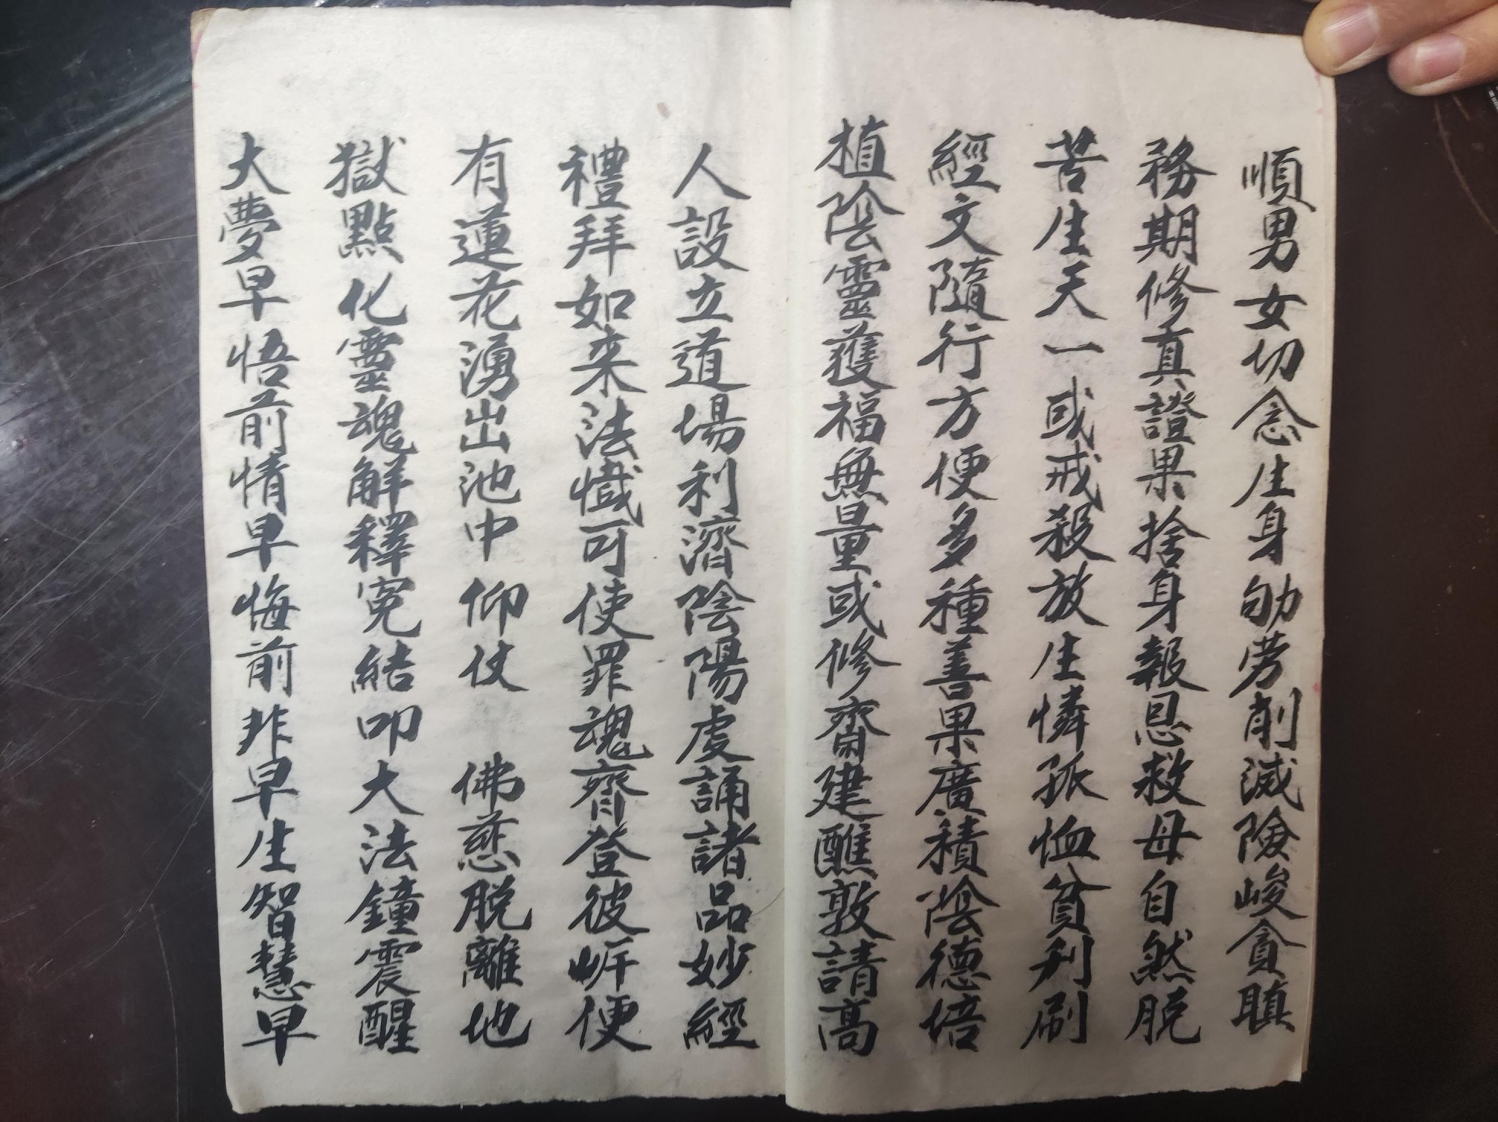 順男女切念生身劬劳削滅險峻貪瞋
務期修真證果捨身報恩救母自然脱
苦生天一或戒殺放生憐孤恤貧刋刷
經文隨行方便多種善果廣積陰德培
植陰靈獲福無量或修齋建醮敦請高
人設立道場利濟陰陽虔誦諸品妙經
禮拜如来法懺可使罪魂齊登彼岍便
有蓮花湧出池中仰仗 佛慈脱離地
獄點化靈魂解釋寃結叩大法鐘震醒
大夢早悟前情早悔前非早生智慧早